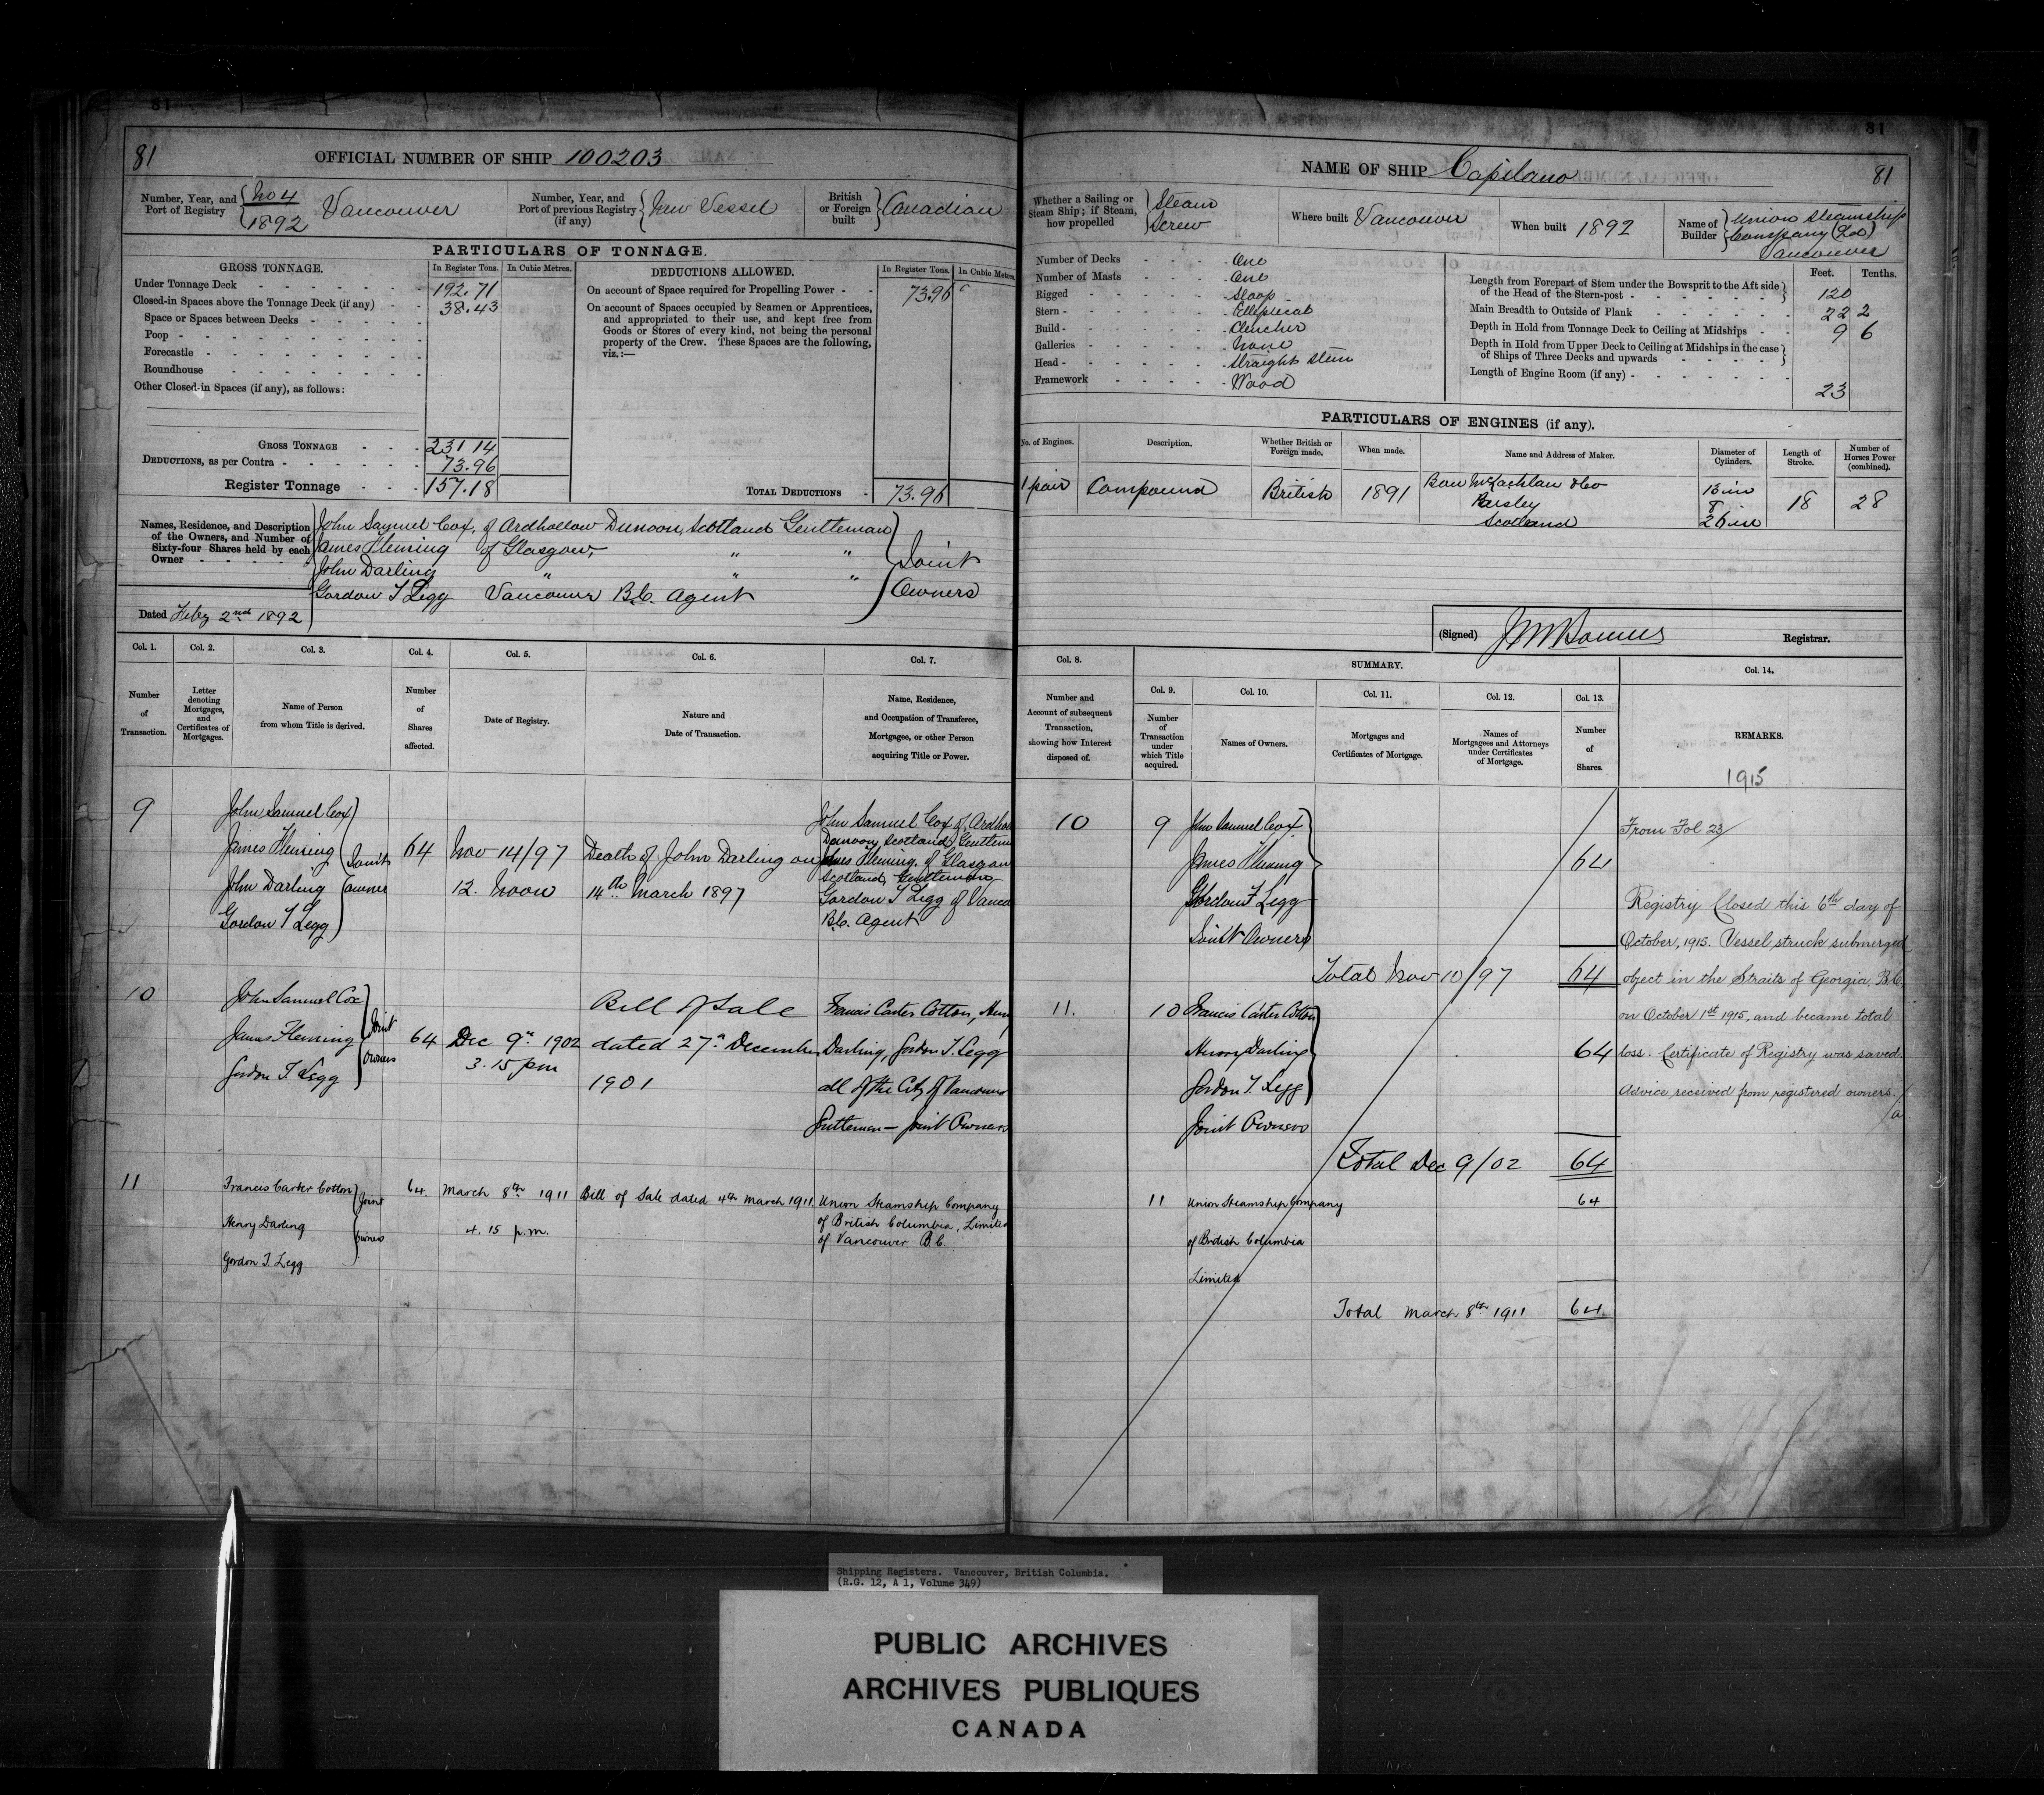 81
81
81
OFFICIAL NUMBER OF SHIP 100203
Number, Year, and Port of Registry { No 4 1892 Vancouver
Number, Year, and Port of previous Registry (if any) { New Vessel
British or Foreign built } Canadian
PARTICULARS OF TONNAGE.
GROSS TONNAGE. In Register Tons. In Cubic Metres.
Under Tonnage Deck 192.71
Closed-in Spaces above the Tonnage Deck (if any) 38.43
Space or Spaces between Decks
Poop
Forecastle
Roundhouse
Other Closed-in Spaces (if any), as follows:
GROSS TONNAGE 231 14
DEDUCTIONS, as per Contra 73.96
Register Tonnage 157.18
DEDUCTIONS ALLOWED. In Register Tons. In Cubic Metres.
On account of Space required for Propelling Power 73.96
On account of Spaces occupied by Seamen or Apprentices,
and appropriated to their use, and kept free from
Goods or Stores of every kind, not being the personal
property of the Crew. These Spaces are the following,
viz.:—
TOTAL DEDUCTIONS 73.96
Names, Residence, and Description of the Owners, and Number of Sixty-four Shares held by each Owner
John Samuel Cox, of Ardhallow Dunoon, Scotland Gentleman
James Fleming of Glasgow, " "
John Darling " " "
Gordon T Legg Vancouver B.C. Agent
Joint Owners
Dated Feby 2nd 1892
NAME OF SHIP Capilano
81
Whether a Sailing or Steam Ship; if Steam, how propelled { Steam Screw
Where built Vancouver
When built 1892
Name of Builder { Union Steamship Company (Ld) Vancouver
Number of Decks One
Number of Masts One
Rigged Sloop
Stern Elliptical
Build Clencher
Galleries None
Head Straight stem
Framework Wood
Feet. Tenths.
Length from Forepart of Stem under the Bowsprit to the Aft side of the Head of the Stern-post 120
Main Breadth to Outside of Plank 22 2
Depth in Hold from Tonnage Deck to Ceiling at Midships 9 6
Depth in Hold from Upper Deck to Ceiling at Midships in the case of Ships of Three Decks and upwards
Length of Engine Room (if any) 23
PARTICULARS OF ENGINES (if any).
No. of Engines. Description. Whether British or Foreign made. When made. Name and Address of Maker. Diameter of Cylinders. Length of Stroke. Number of Horses Power (combined).
1 pair Compound British 1891 Bow McLachlan & Co Paisley Scotland 13 in & 26 in 18 28
(Signed) Registrar.
Col. 1. Col. 2. Col. 3. Col. 4. Col. 5. Col. 6. Col. 7.
Number of Transaction.
Letter denoting Mortgages, and Certificates of Mortgages.
Name of Person from whom Title is derived.
Number of Shares affected.
Date of Registry.
Nature and Date of Transaction.
Name, Residence, and Occupation of Transferee, Mortgagee, or other Person acquiring Title or Power.
Col. 8. SUMMARY. Col. 14.
Col. 9. Col. 10. Col. 11. Col. 12. Col. 13.
Number and Account of subsequent Transaction, showing how Interest disposed of.
Number of Transaction under which Title acquired.
Names of Owners.
Mortgages and Certificates of Mortgage.
Names of Mortgagees and Attorneys under Certificates of Mortgage.
Number of Shares.
REMARKS.
1915
9
John Samuel Cox
James Fleming
John Darling
Gordon T Legg
Joint owners
64
Nov 14/97
12. Noon
Death of John Darling on
14th March 1897
John Samuel Cox of Ardhal
Dunoon, Scotland, Gentlem
James Fleming, of Glasgow
Scotland, Gentleman
Gordon T Legg of Vanco
B.C. Agent
10
9
John Samuel Cox
James Fleming
Gordon T Legg
Joint Owners
64
Total Nov 10/97 64
10
John Samuel Cox
James Fleming
Gordon T. Legg
Joint owners
64
Dec 9th 1902
3.15 pm
Bill of Sale
dated 27th December
1901
Francis Carter Cotton, Henry
Darling, Gordon T. Legg
all of the City of Vancouver
Gentlemen — Joint Owners
11.
10
Francis Carter Cotton
Henry Darling
Gordon T. Legg
Joint Owners
64
Total Dec 9/02 64
11
Francis Carter Cotton
Henry Darling
Gordon T. Legg
Joint owners
64.
March 8th 1911
4.15 p.m.
Bill of Sale dated 4th March 1911
Union Steamship Company
of British Columbia, Limited
of Vancouver B.C.
11
Union Steamship Company
of British Columbia
Limited
64
Total March 8th 1911 64
From Fol 23
Registry Closed this 6th day of
October, 1915. Vessel struck submerged
object in the Straits of Georgia, B.C.
on October 1st 1915, and became total
loss. Certificate of Registry was saved.
Advice received from registered owners.
Shipping Registers. Vancouver, British Columbia.
(R.G. 12, A 1, Volume 349)
PUBLIC ARCHIVES
ARCHIVES PUBLIQUES
CANADA